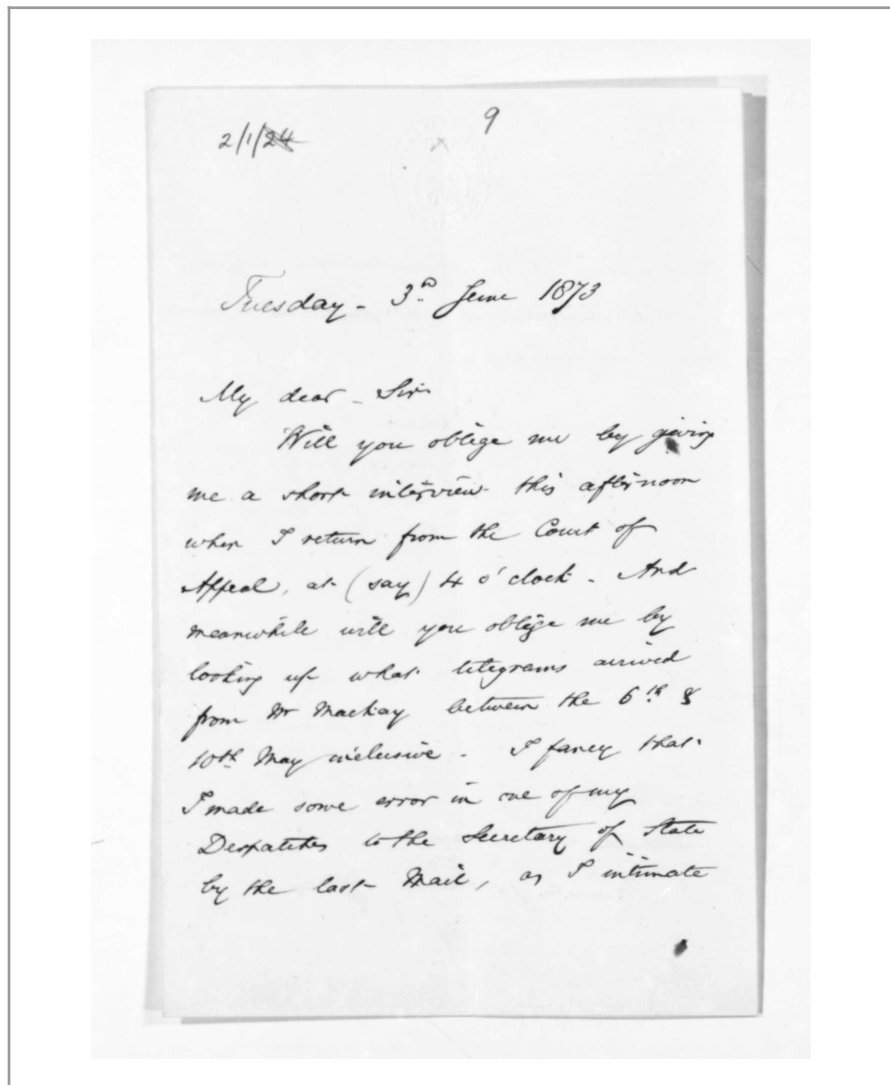 9
2/1/24
Tuesday - 3rd June 1873
My dear - Sir
Will you oblige me by giving
me a short interview this afternoon
when I return from the Court of
Appeal, at (say) 4 o'clock - And
meanwhile will you oblige me by
looking up what telegrams arrived
from Mr Mackay between the 6th &
10th May inclusive. I fancy that
I made some error in one of my
Despatches to the Secretary of State
by the last Mail, as I intimate